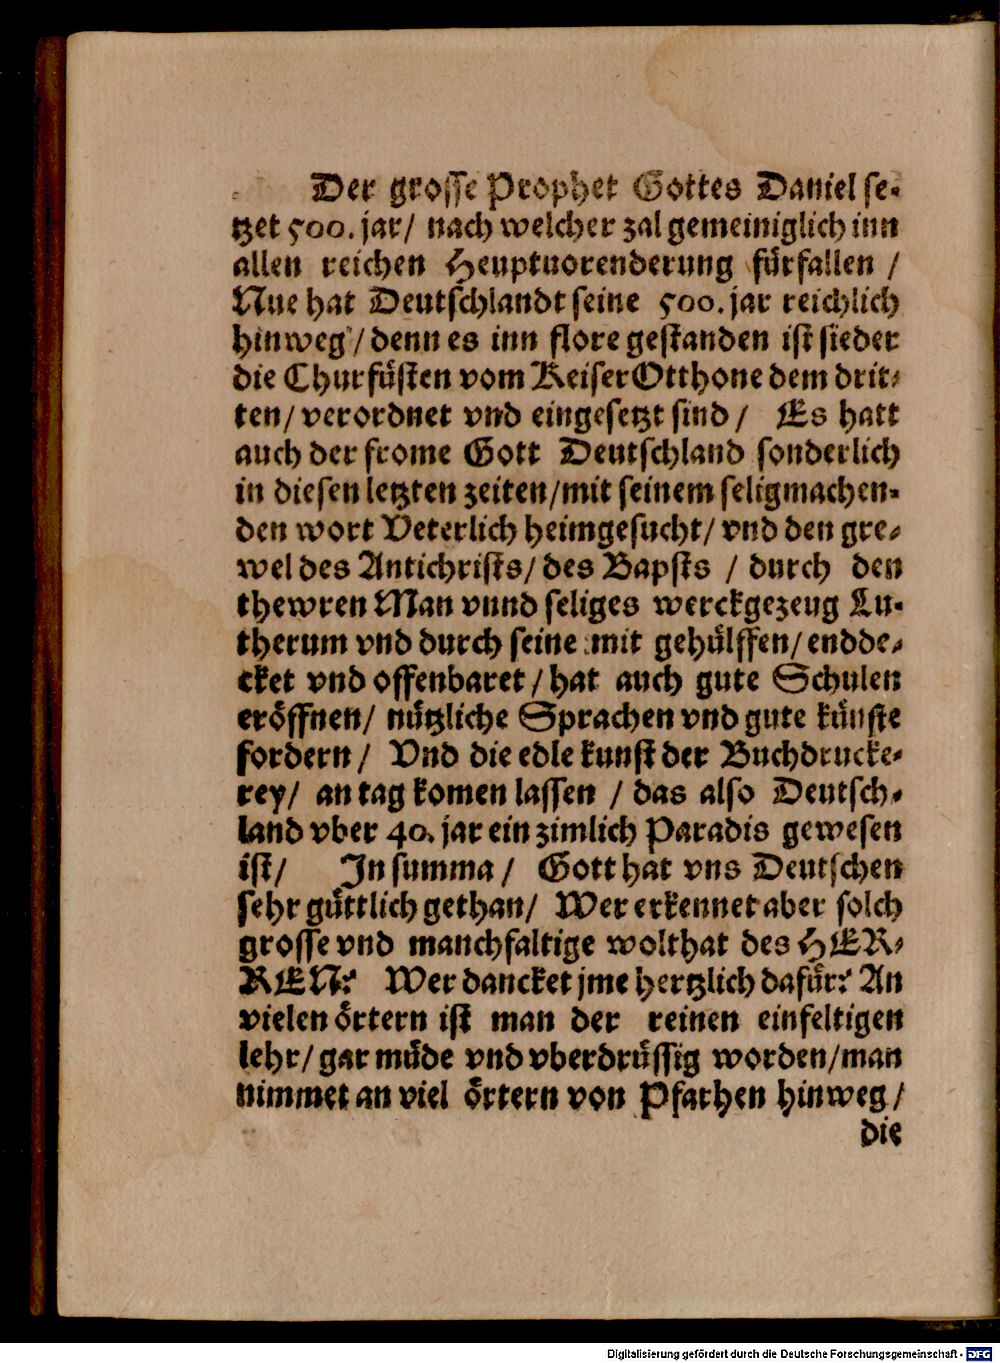 Der grosse Prophet Gottes Daniel se-
tzet 500. jar/ nach welcher zal gemeiniglich inn
allen reichen Heuptuorenderung fürfallen /
Nue hat Deutschlandt seine 500. jar reichlich
hinweg / denn es inn flore gestanden ist sieder
die Churfüsten vom Keiser Otthone dem drit-
ten/ verordnet vnd eingesetzt sind / Es hatt
auch der frome Gott Deutschland sonderlich
in diesen letzten zeiten/mit seinem seligmachen-
den wort Veterlich heimgesucht/ vnd den gre-
wel des Antichrists/ des Bapsts / durch den
thewren Man vnnd seliges werckgezeug Lu-
therum vnd durch seine mit gehülffen/ endde-
cket vnd offenbaret / hat auch gute Schulen
eröffnen/ nützliche Sprachen vnd gute künste
fordern / Vnd die edle kunst der Buchdrucke-
rey/ an tag komen lassen / das also Deutsch-
land vber 40. jar ein zimlich Paradis gewesen
ist/ In summa / Gott hat vns Deutschen
sehr güttlich gethan/ Wer erkennet aber solch
grosse vnd manchfaltige wolthat des HER-
REN? Wer dancket jme hertzlich dafür? An
vielen örtern ist man der reinen einfeltigen
lehr/ gar müde vnd vberdrüssig worden/man
nimmet an viel örtern von Pfarhen hinweg /
die
Digitalisierung gefördert durch die Deutsche Forschungsgemeinschaft - DFG